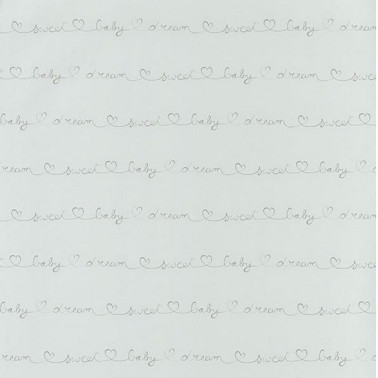 sweet baby dream sweet baby dream
baby dream sweet baby dream sweet
baby dream sweet baby dream sweet baby
dream sweet baby dream sweet baby
sweet baby dream sweet baby dream
baby dream sweet baby dream sweet
baby dream sweet baby dream sweet baby
dream sweet baby dream sweet baby